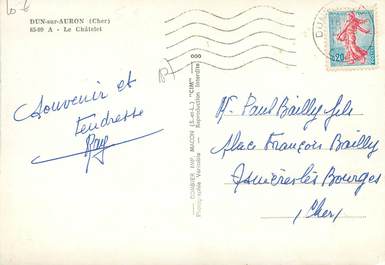 10 €
DUN-sur-AURON (Cher)
85-09 A - Le Châtelet
DUN
0,20
Souvenir et
Tendresse
COMBIER IMP. MACON (S.-et-L.) "CIM"
Photographie Véritable - Reproduction Interdite
Mr Paul Bailly fils
Place François Bailly
Asnières les Bourges
(Cher)